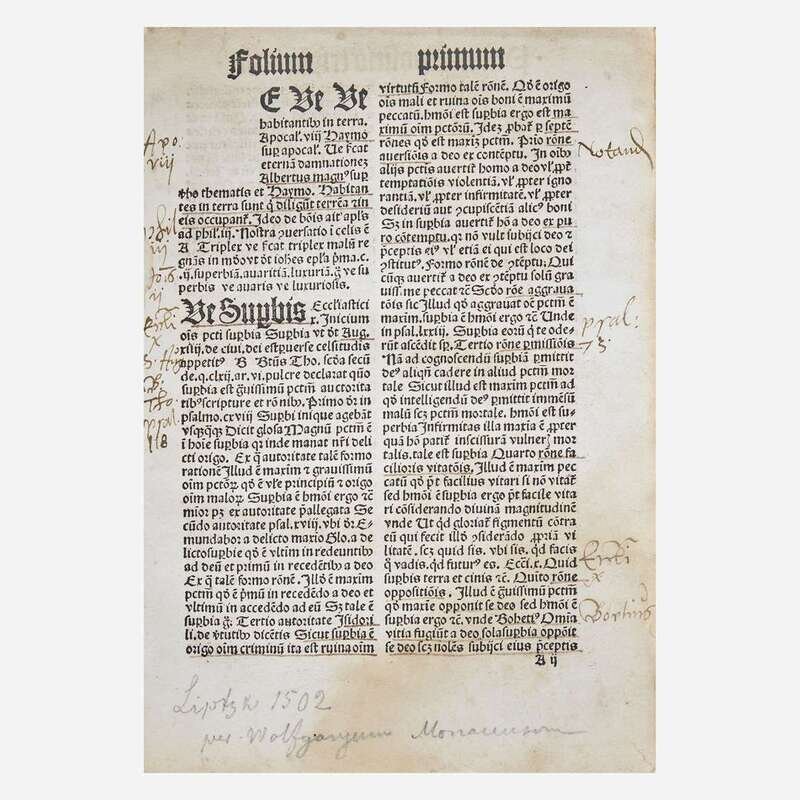 Folium primum
E Ve Ve
habitantibꝰ in terra.
Apocal'. viij Haymo
sup apocal'. Ue ſcat
eternā damnationez
Albertus magnꝰ sup
tho thematis et Haymo. Habitan
tes in terra sunt q̄ diligūt terrēa ⁊in
eis occupant̄. Ideo de bōis ait apl's
ad phil'. iij. Nostra ꝯuersatio i celis ē
A Triplex ve ſcat triplex malū re
gnās in mōdo vt dt iohes epl'a pma. c.
.ij. supbiā. auaritiā. luxuriā. ḡ ve su
perbis ve auaris ve luxuriosis.
Ve Suꝑbis Ecclīastici
x. Inicium
ois pcti suꝑbia Suꝑbia vt dt Aug.
xiiij. de ciui. dei est ꝑuerse celsitudis
appetitꝰ B Btūs Tho. scōa secū
de. q. clxij. ar. vi. pulcre declarat quō
suꝑbia est ḡuissimū pctm̄ auctorita
tibꝰ scripture et rōnibꝰ. Primo dr̄ in
psalmo. cxviij Suꝑbi inique agebāt
vsq̄q̄ꝫ Dicit glosa Magnū pctm̄ ē
i hoīe suꝑbia qr inde manat nr̄i deli
cti origo. Ex q̄ autoritate talē formo
rationē Illud ē maximꝫ et grauissimū
oīm pctoꝝ qd̄ ē vl'e principiū ⁊ origo
oīm maloꝝ. Suꝑbia ē hmōi ergo ⁊c̄
mior pꝫ ex autoritate p̄allegata Se
cūdo autoritate psal. xviij. vbi dr̄ E-
mundabor a delicto maxīo Glo. a de
licto suꝑbie qd̄ ē vltim̄ in redeuntibꝰ
ad deū et primū in recedētibꝰ a deo
Ex q̄ talē formo rōnē. Illd̄ ē maximꝫ
pctm̄ qd̄ ē p̄mū in recedēdo a deo et
vltimū in accedēdo ad eū Sꝫ tale ē
suꝑbia ḡ. Tertio autoritate Isidori
li. de v̄tutibꝰ dicētis Sicut suꝑbia ē
origo oīm criminū ita est ruina oīm
virtutū Formo talē rōnē. Qd̄ ē origo
oīs mali et ruina oīs boni ē maximū
peccatū. hmōi est suꝑbia ergo est ma
ximū oīm pctōꝝ. Idez ꝓbat̄ ꝑ septē
rōnes qd̄ est maxīꝫ pctm̄. Prīo rōne
auersiōis a deo ex cōtēptu. In oībꝰ
alijs pctis auertit̄ homo a deo vl' ꝓpt̄
temptatiōis violentiā. vl' ꝓpter igno
rantiā. vl' ꝓpter infirmitatē. vl' ꝓpter
desideriū aut ꝯcupiscētiā alicꝰ boni
Sꝫ in suꝑbia auertit̄ hō a deo ex pu
ro cōtemptu. qr nō vult subijci deo ⁊
p̄ceptis eiꝰ vl' etiā ei qui est loco dei
ꝯstitutꝰ. Formo rōnē de ꝯtēptu. Qui
cūqꝫ auertit̄ a deo ex ꝯtēptu solū gra
uissīme peccat ⁊c̄ Scōo rōne aggraua
tiōis sic Illud qd̄ aggrauat oē pctm̄ ē
maximꝫ. suꝑbia ē hmōi ergo ⁊c̄ Unde
in psal. lxxiij. Suꝑbia eoꝝ q̄ te ode-
rūt ascēdit sp̄. Tertio rōne ꝑmissiōis
Nā ad cognoscendū suꝑbiā ꝑmittit
de' aliqn̄ cadere in aliud pctm̄ mor
tale Sicut illud est maximꝫ pctm̄ ad
qd̄ intelligendū de' ꝑmittit immēsū
malū scꝫ pctm̄ mortale. hmōi est su-
perbia Infirmitas illa maxīa ē ꝓpter
quā hō patit̄ inscissurā vulneꝝ mor
talis. tale est suꝑbia Quarto rōne fa
cilioris vitatōis. Illud ē maximꝫ pec
catū qd̄ pt facilius vitari si nō vitat̄
sed hmōi ē suꝑbia ergo pt facile vita
ri cōsiderando diuinā magnitudinē
vnde Ut qd gloriat̄ figmentū cōtra
eū qui fecit illd̄ ꝯsiderādo ꝓpriā vi
litatē. scꝫ quid sis. vbi sis. qd̄ facis
q̄ vadis. qd̄ futurꝰ es. Eccī. x. Quid
suꝑbis terra et cinis ⁊c̄. Quito rōne
oppositiōis. Illud ē ḡuissimū pctm̄
qd̄ maxīe opponit se deo sed hmōi ē
suꝑbia ergo ⁊c̄. vnde Bohetiꝰ Omīa
vitia fugiūt a deo sola suꝑbia oppōit
se deo scꝫ nolēs subijci eius p̄ceptis
A ij
Apo.
viij
phil
iij
Jo. 6
ij
Eccī
x
Tho.
psal.
118
Notand
psal:
73.
Eccī
x
Boetius
Liptzk 1502
per Wolfgangum Monacensem